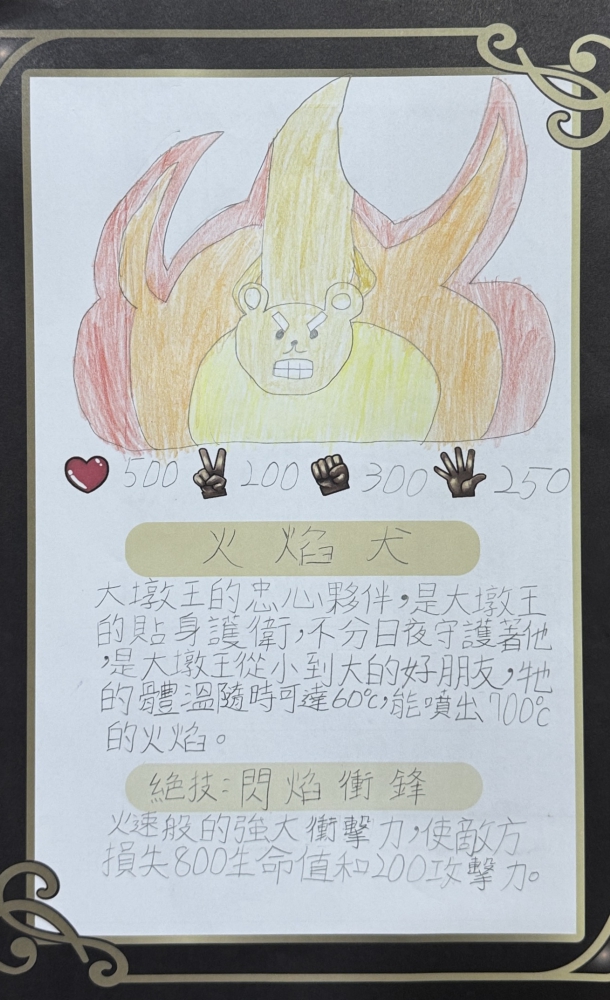 500 200 300 250
火焰犬
大墩王的忠心夥伴，是大墩王
的貼身護衛，不分日夜守護著他
，是大墩王從小到大的好朋友，牠
的體溫隨時可達60℃，能噴出700℃
的火焰。
絕技：閃焰衝鋒
火速般的強大衝擊力，使敵方
損失800生命值和200攻擊力。